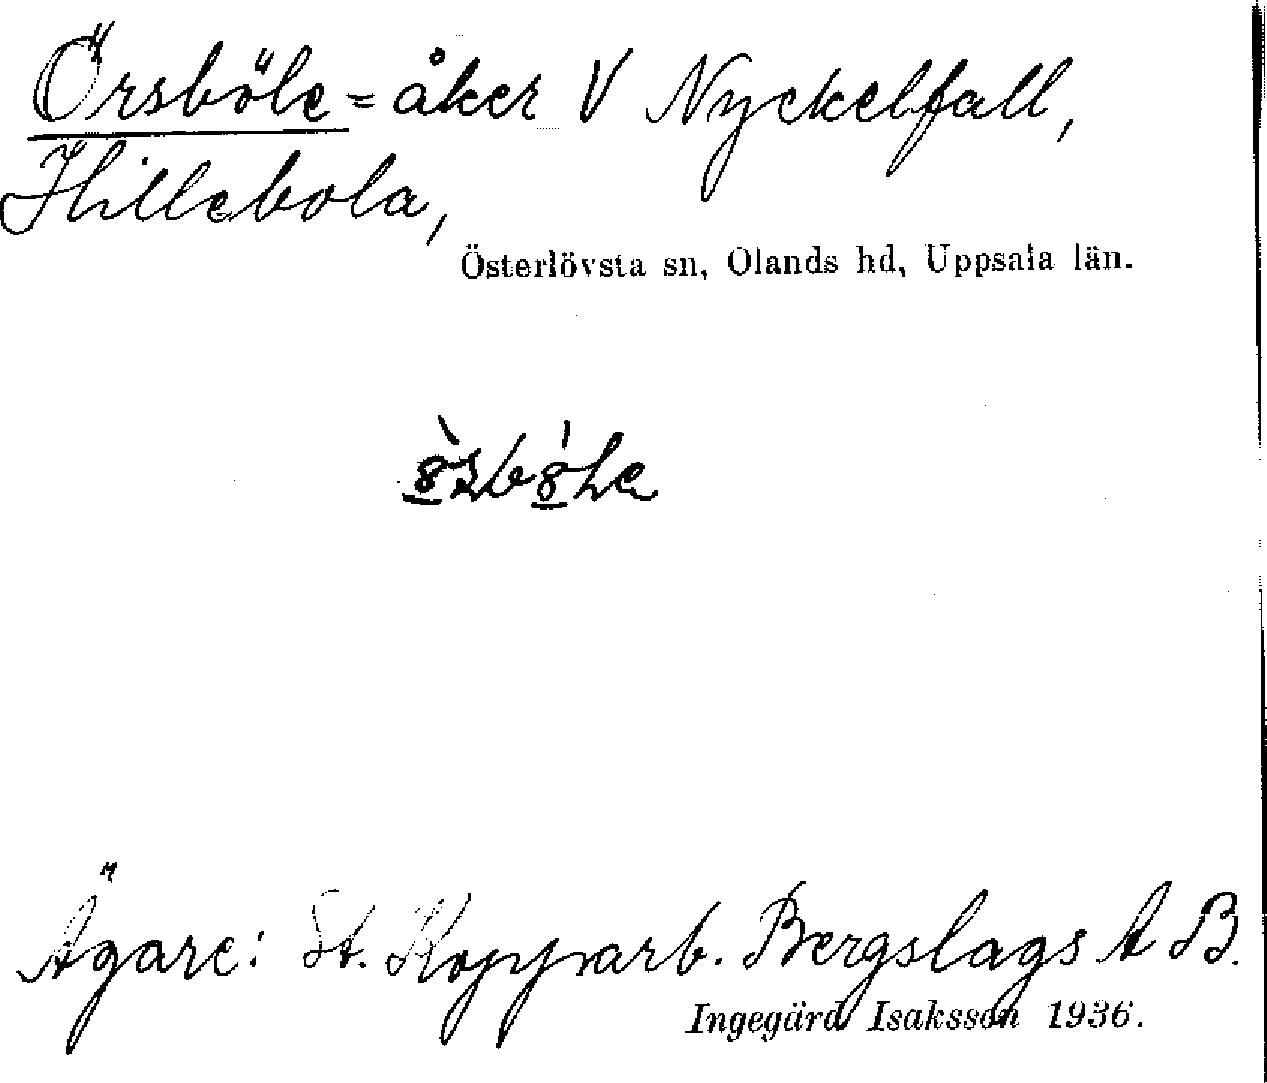 Örsböle = åker V Nyckelfall,
Hillebola,
Österlövsta sn, Olands hd, Uppsala län.
Ägare: St. Kopparb. Bergslags A B.
Ingegärd Isaksson 1936.